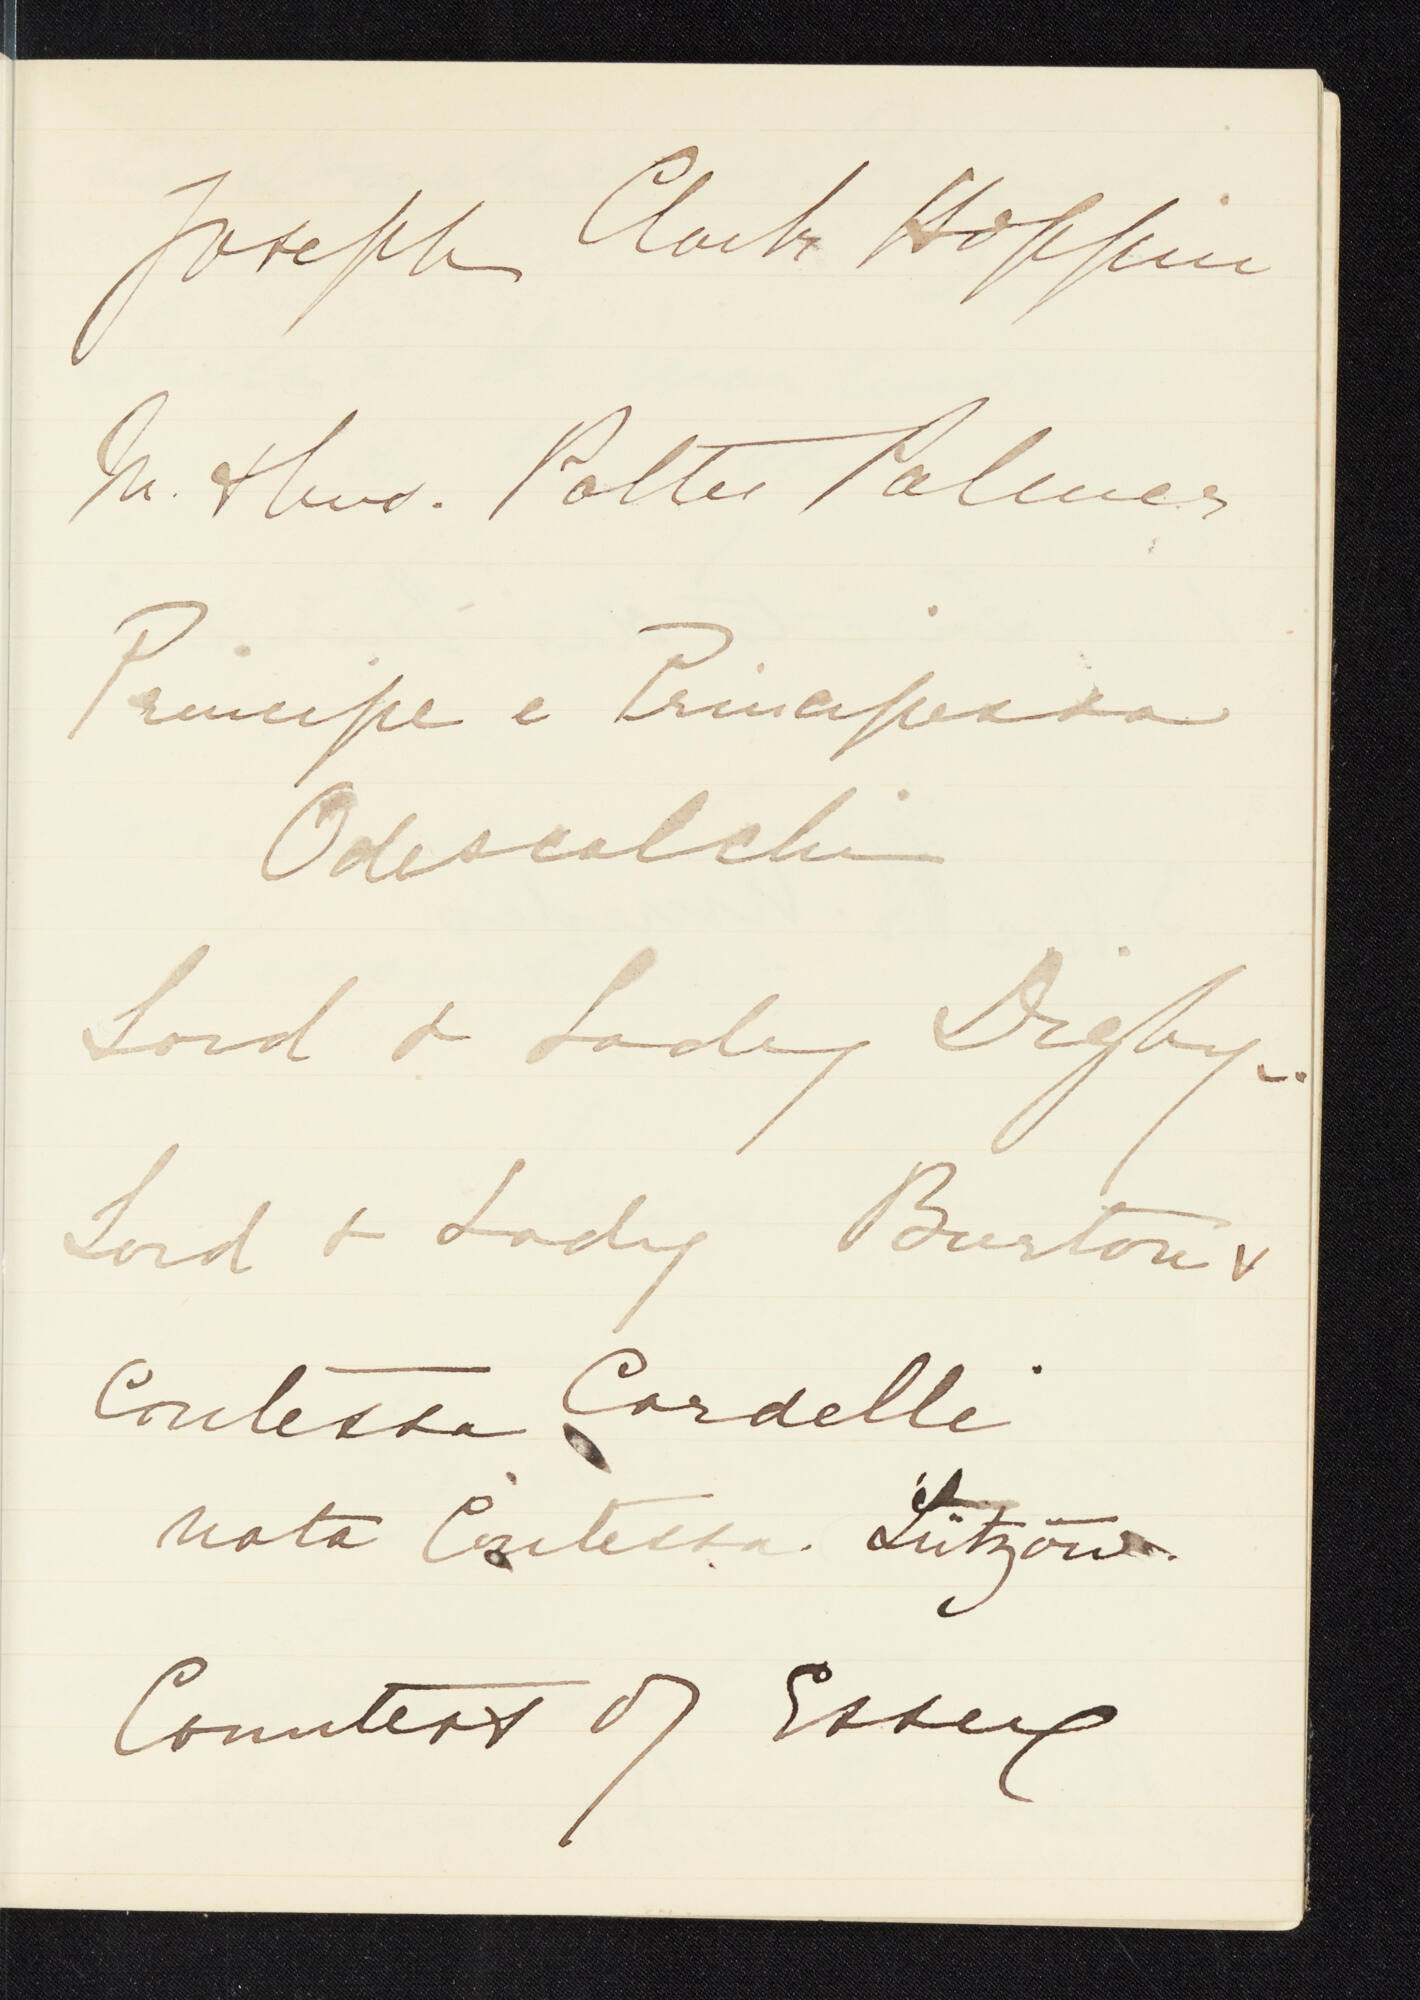 Joseph Clark Hoppin
M. & Mrs. Potter Palmer
Principe e Principessa
Odescalchi
Lord & Lady Digby
Lord & Lady Burton
Contessa Cardelli
nata Contessa Lützow.
Countess of Essex